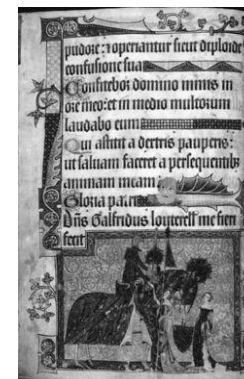 pudore: ⁊ operiantur sicut diploide
confusione sua
Confitebor domino nimis in
ore meo: et in medio multorum
laudabo eum
Qui astitit a dextris pauperis:
ut saluam faceret a persequentib;
animam meam
Gloria patri
Dns Galfridus louterell me fieri
fecit